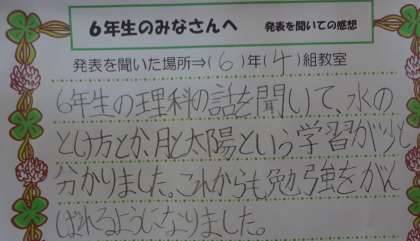 6年生のみなさんへ　発表を聞いての感想
発表を聞いた場所⇒(6)年(4)組教室
6年生の理科の話を聞いて、水の
とけ方とか、月と太陽という学習が少し
分かりました。これからも勉強をがん
ばれるようになりました。